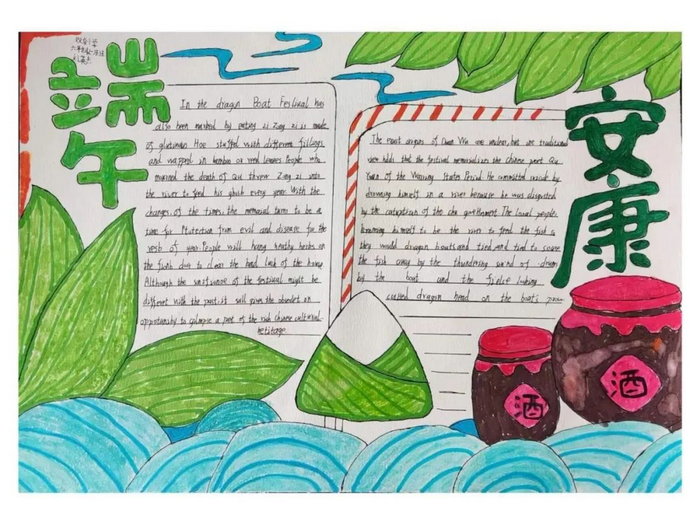 端午
安康
In the dragon Boat Festival has
also been marked by eating zi Zong zi is made
of glutinous Hoe stuffed with different fillings
and wapped in bamboo or reed leaves People who
mourned the death of Qu threw Zong zi into
the river to feed his ghost every year With the
changes of the times, the memorial turn to be a
time for Protection from evil and disease for the
rest of year. People will hang healthy herbs on
the door to clear the bad luck of the house
Although the of the festival might be
different with the past, it still gives the on
opportunity to glimpse a part of the rich Chinese cultural
heritage
The exact origins of Duan Wu are unclear, but one traditional
view holds that the festival memorializes the Chinese poet Qu
Yuan of the Warring States Period. He committed suicide by
drowning himself in a river because he was disgusted
by the of the chu government. The local people,
knowing himself to be the river to feed the fish a
they would dragon boats and tried and tied to scare
the fish away by the thundering sound of drums
by the boat and the fierce looking
carved dragon head on the boat's prow.
酒
酒